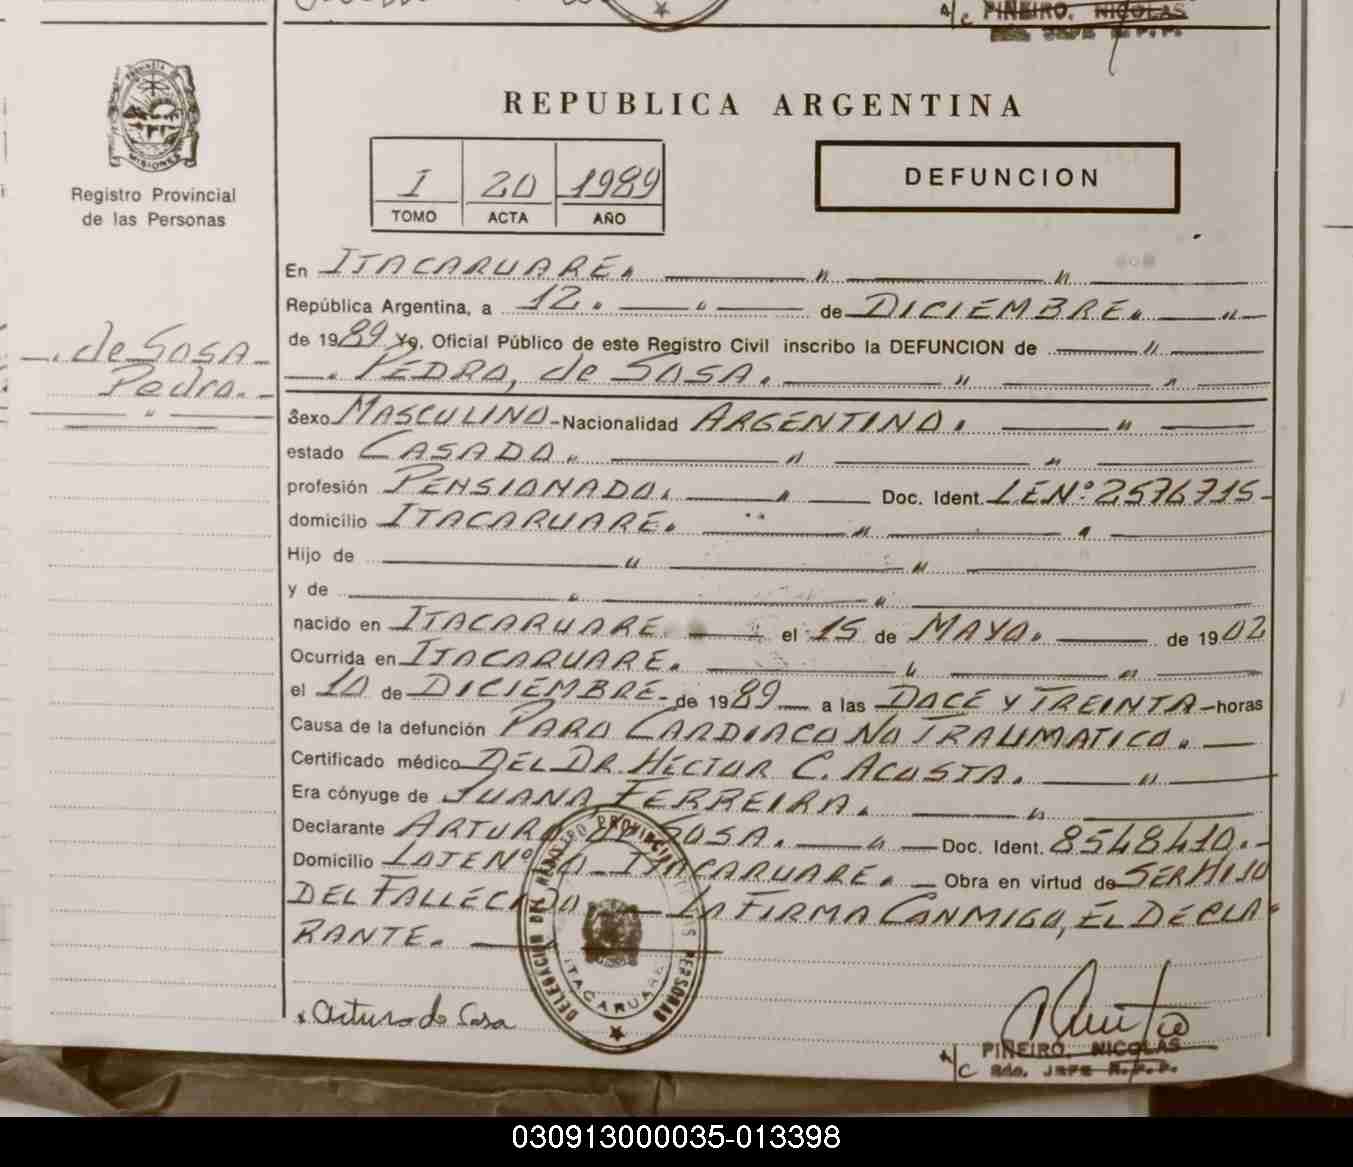 a/c PIÑEIRO, NICOLAS
JEFE R.P.P.
PROVINCIA DE
MISIONES
Registro Provincial
de las Personas
REPUBLICA ARGENTINA
I 20 1989
TOMO ACTA AÑO
DEFUNCION
de Sosa
Pedro.
En ITACARUARE.
República Argentina, a 12. de DICIEMBRE.
de 1989 Yo, Oficial Público de este Registro Civil inscribo la DEFUNCION de
PEDRO, de SOSA.
Sexo MASCULINO - Nacionalidad ARGENTINO.
estado CASADO.
profesión PENSIONADO. Doc. Ident. L E Nº 2576715-
domicilio ITACARUARE.
Hijo de
y de
nacido en ITACARUARE. el 15 de MAYO. de 1902
Ocurrida en ITACARUARE.
el 10 de DICIEMBRE- de 1989 a las DOCE Y TREINTA - horas
Causa de la defunción PARO CARDIACO NO TRAUMATICO.
Certificado médico DEL DR HECTOR C. ACOSTA.
Era cónyuge de JUANA FERREIRA.
Declarante ARTURO SOSA. Doc. Ident. 8548410.-
Domicilio LOTE Nº ITACARUARE. Obra en virtud de SER HIJO
DEL FALLECIDO LA FIRMA CONMIGO, EL DECLA-
RANTE.
DELEGACION DEL REGISTRO PROVINCIAL DE LAS PERSONAS
ITACARUARE
x Arturo de Sosa
a/c PIÑEIRO, NICOLAS
2do. JEFE R.P.P.
030913000035-013398